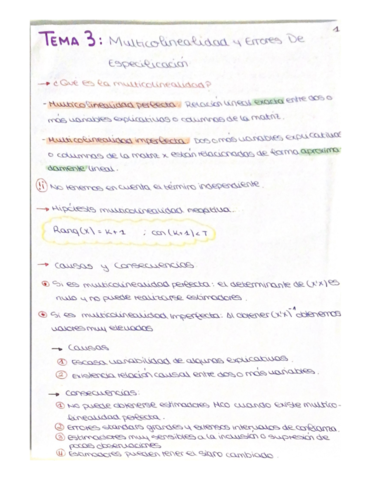 1
TEMA 3: Multicolinealidad y Errores De
Especificación
→ ¿Qué es la multicolinealidad?
- Multicolinealidad perfecta: Relación lineal exacta entre dos o
más variables explicativas o columnas de la matriz.
- Multicolinealidad imperfecta: Dos o más variables explicativas
o columnas de la matriz x están relacionadas de forma aproxima
damente lineal.
No tenemos en cuenta el término independiente.
→ Hipótesis multicolinealidad negativa.
Rang(x) = k+1 ; con (k+1) < T
→ Causas y Consecuencias.
Si es multicolinealidad perfecta: el determinante de (x'x) es
nulo y no puede realizarse estimadores.
Si es multicolinealidad imperfecta: Al obtener (x'x)⁻¹ obtenemos
valores muy elevados
→ Causas
① Escasa variabilidad de algunas explicativas.
② Existencia relación causal entre dos o más variables.
→ Consecuencias:
① No puede obtenerse estimadores MCO cuando existe multico-
linealidad perfecta.
② Errores standars grandes y extensos intervalos de confianza.
③ Estimadores muy sensibles a la inclusión o supresión de
pocas observaciones
④ Estimadores pueden tener el signo cambiado.